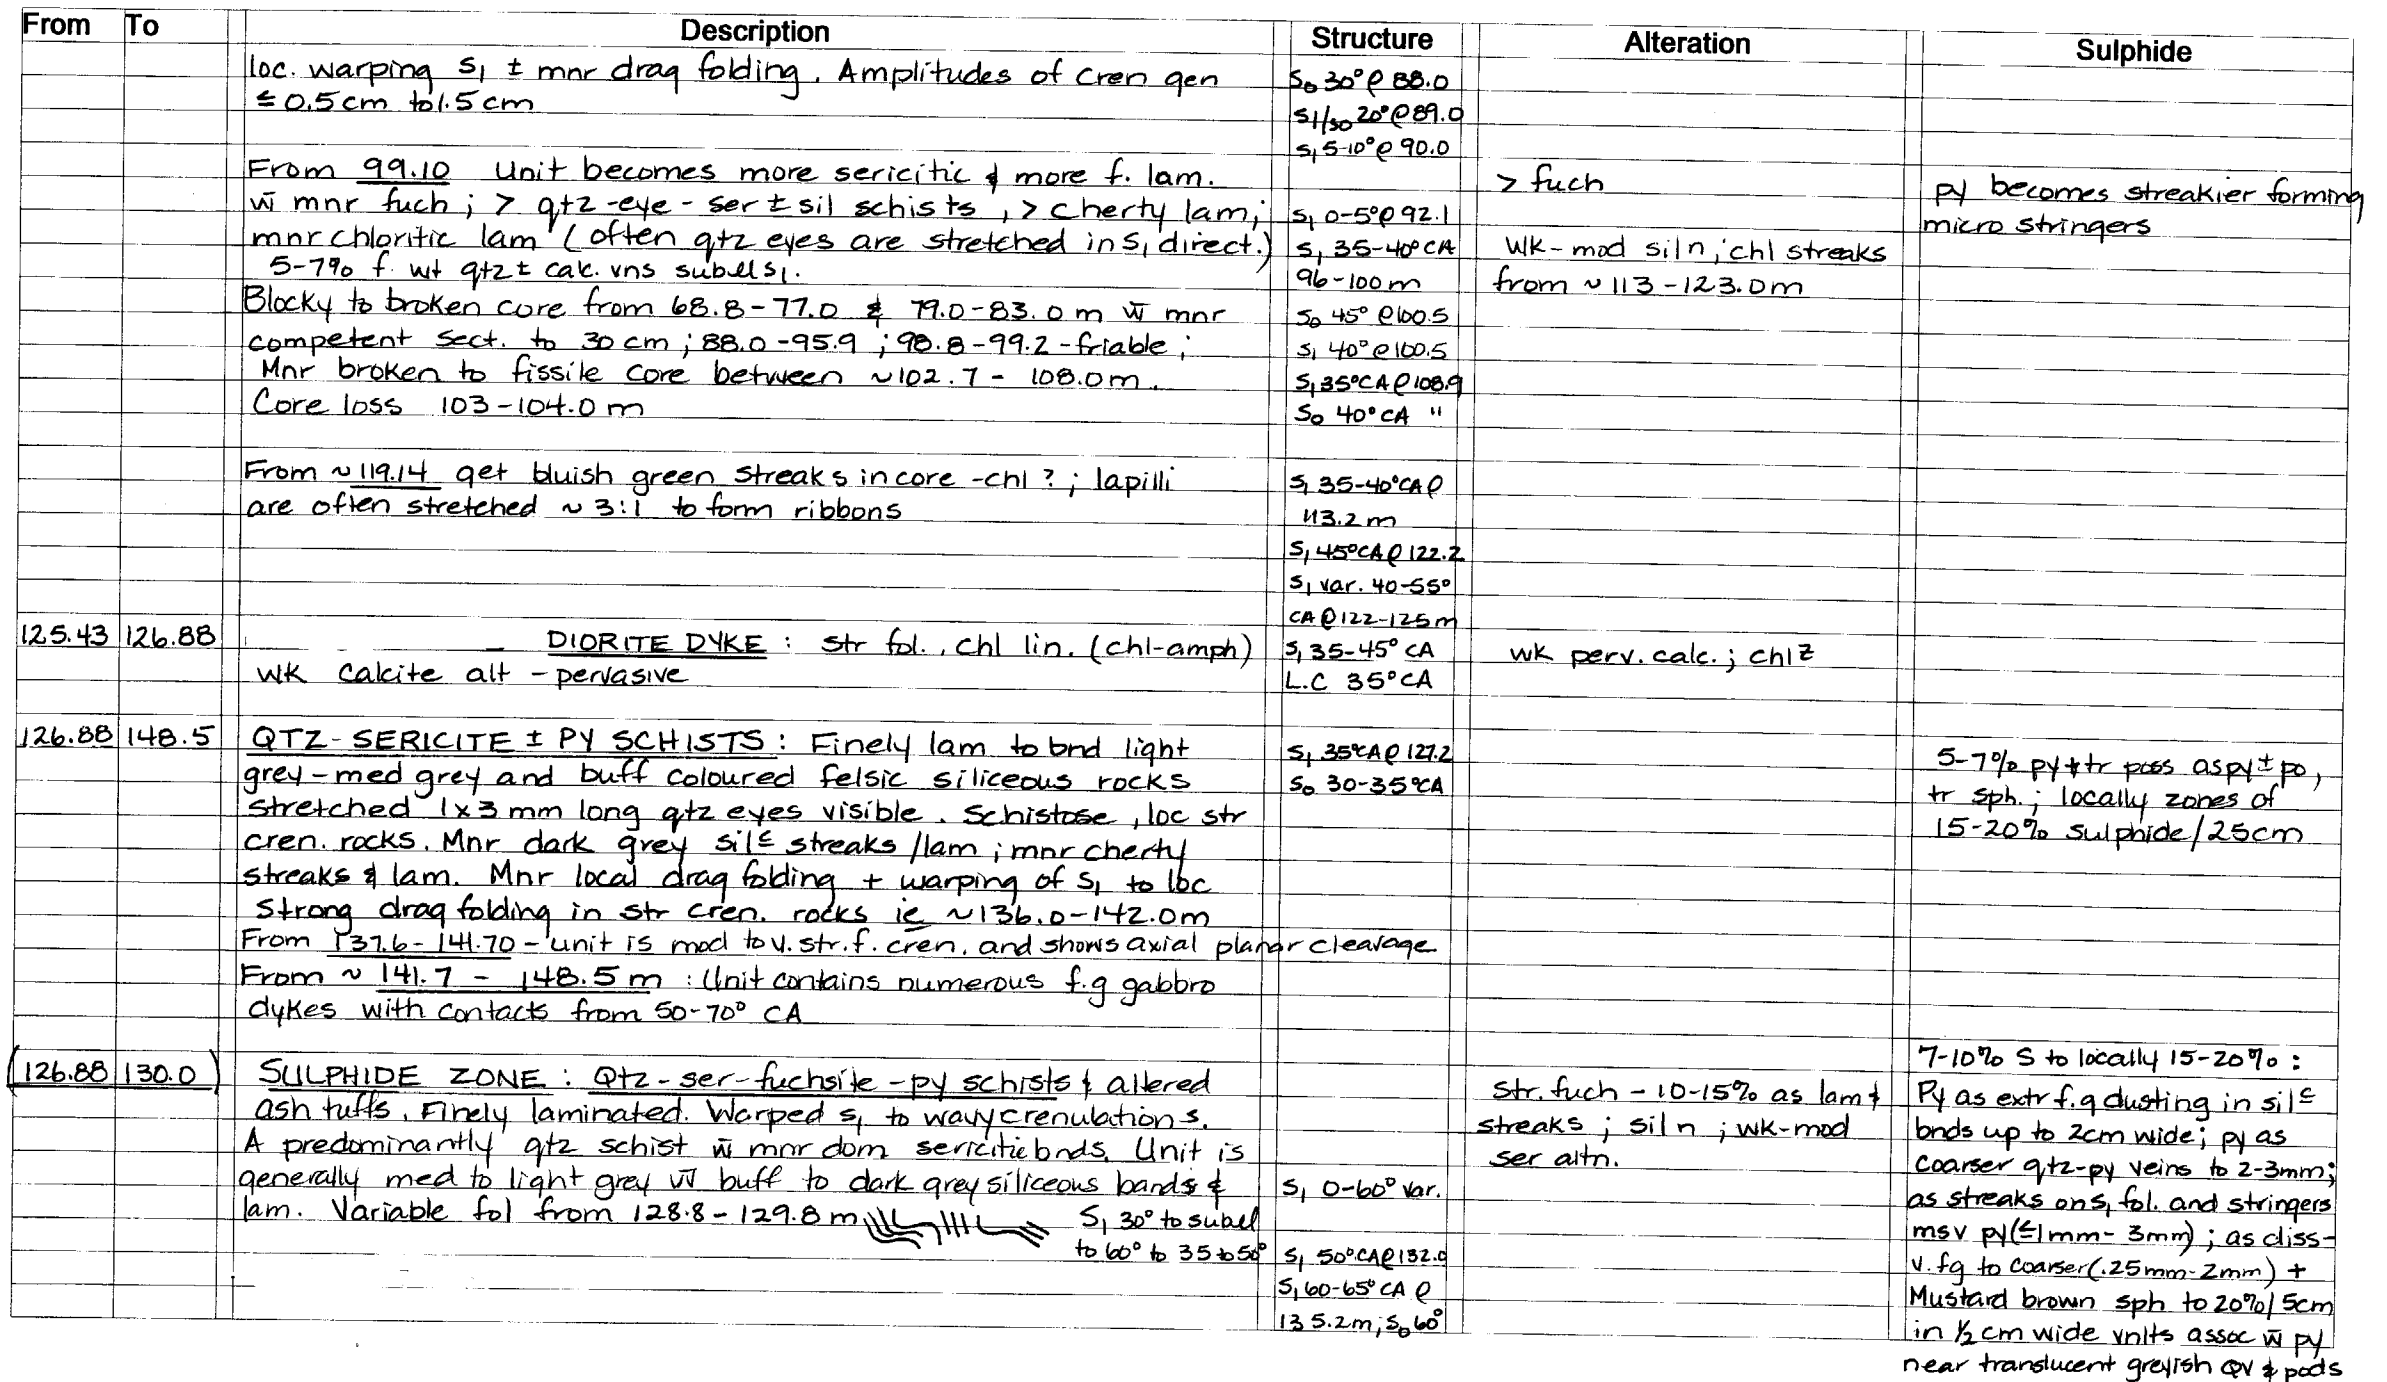 From To Description Structure Alteration Sulphide
loc. warping S₁ ± mnr drag folding. Amplitudes of cren gen
≤ 0.5cm to 1.5cm
From 99.10 Unit becomes more sericitic & more f. lam.
w̄ mnr fuch; > qtz-eye-ser ± sil schists, > cherty lam;
mnr chloritic lam (often qtz eyes are stretched in S₁ direct.)
5-7% f. wt qtz ± calc. vns subll S₁.
Blocky to broken core from 68.8-77.0 & 79.0-83.0 m w̄ mnr
competent sect. to 30 cm; 88.0-95.9; 98.8-99.2-friable;
Mnr broken to fissile core between ~102.7 - 108.0m.
Core loss 103-104.0 m
From ~119.14 get bluish green streaks in core -chl?; lapilli
are often stretched ~ 3:1 to form ribbons
S₀ 30° @ 88.0
S1/S0 20° @89.0
S₁ 5-10° @ 90.0
S₁ 0-5° @ 92.1
S₁ 35-40° CA
96-100 m
S₀ 45° @100.5
S₁ 40° @100.5
S₁ 35°CA @108.9
S₀ 40° CA "
S₁ 35-40°CA @
113.2 m
S₁ 45°CA @ 122.2
S₁ var. 40-55°
CA @ 122-125m
> fuch
wk-mod siln; chl streaks
from ~113-123.0m
py becomes streakier forming
micro stringers
125.43 126.88 DIORITE DYKE: str fol., chl lin. (chl-amph)
wk calcite alt - pervasive
S₁ 35-45° CA
L.C 35°CA
wk perv. calc.; chlz
126.88 148.5 QTZ-SERICITE ± PY SCHISTS: Finely lam to bnd light
grey-med grey and buff coloured felsic siliceous rocks
stretched 1x3 mm long qtz eyes visible. Schistose, loc str
cren. rocks. Mnr dark grey silc streaks/lam; mnr cherty
streaks & lam. Mnr local drag folding + warping of S₁ to loc
strong drag folding in str cren. rocks ie ~136.0-142.0m
From 137.6-141.70 - unit is mod to v. str. f. cren. and shows axial planar cleavage
From ~ 141.7 - 148.5 m: Unit contains numerous f.g gabbro
dykes with contacts from 50-70° CA
S₁ 35°CA @ 127.2
S₀ 30-35°CA
5-7% py + tr poss aspy ± po,
tr sph.; locally zones of
15-20% sulphide/25cm
(126.88 130.0) SULPHIDE ZONE: Qtz-ser-fuchsite-py schists & altered
ash tuffs. Finely laminated. Warped S₁ to wavy crenulations.
A predominantly qtz schist w̄ mnr dom sericitic bnds. Unit is
generally med to light grey w̄ buff to dark grey siliceous bands &
lam. Variable fol from 128.8-129.8m
S₁ 30° to subll
to 60° to 35 to 50°
S₁ 0-60° var.
S₁ 50°CA @ 132.0
S₁ 60-65° CA @
135.2m; S₀ 60°
str. fuch - 10-15% as lam &
streaks; siln; wk-mod
ser altn.
7-10% S to locally 15-20%:
Py as extr f.g dusting in silc
bnds up to 2cm wide; py as
coarser qtz-py veins to 2-3mm;
as streaks on S₁ fol. and stringers
msv py (≤1mm-3mm); as diss-
v.fg to coarser (.25mm-2mm) +
Mustard brown sph to 20%/5cm
in ½ cm wide vnlts assoc w̄ py
near translucent greyish QV & pods